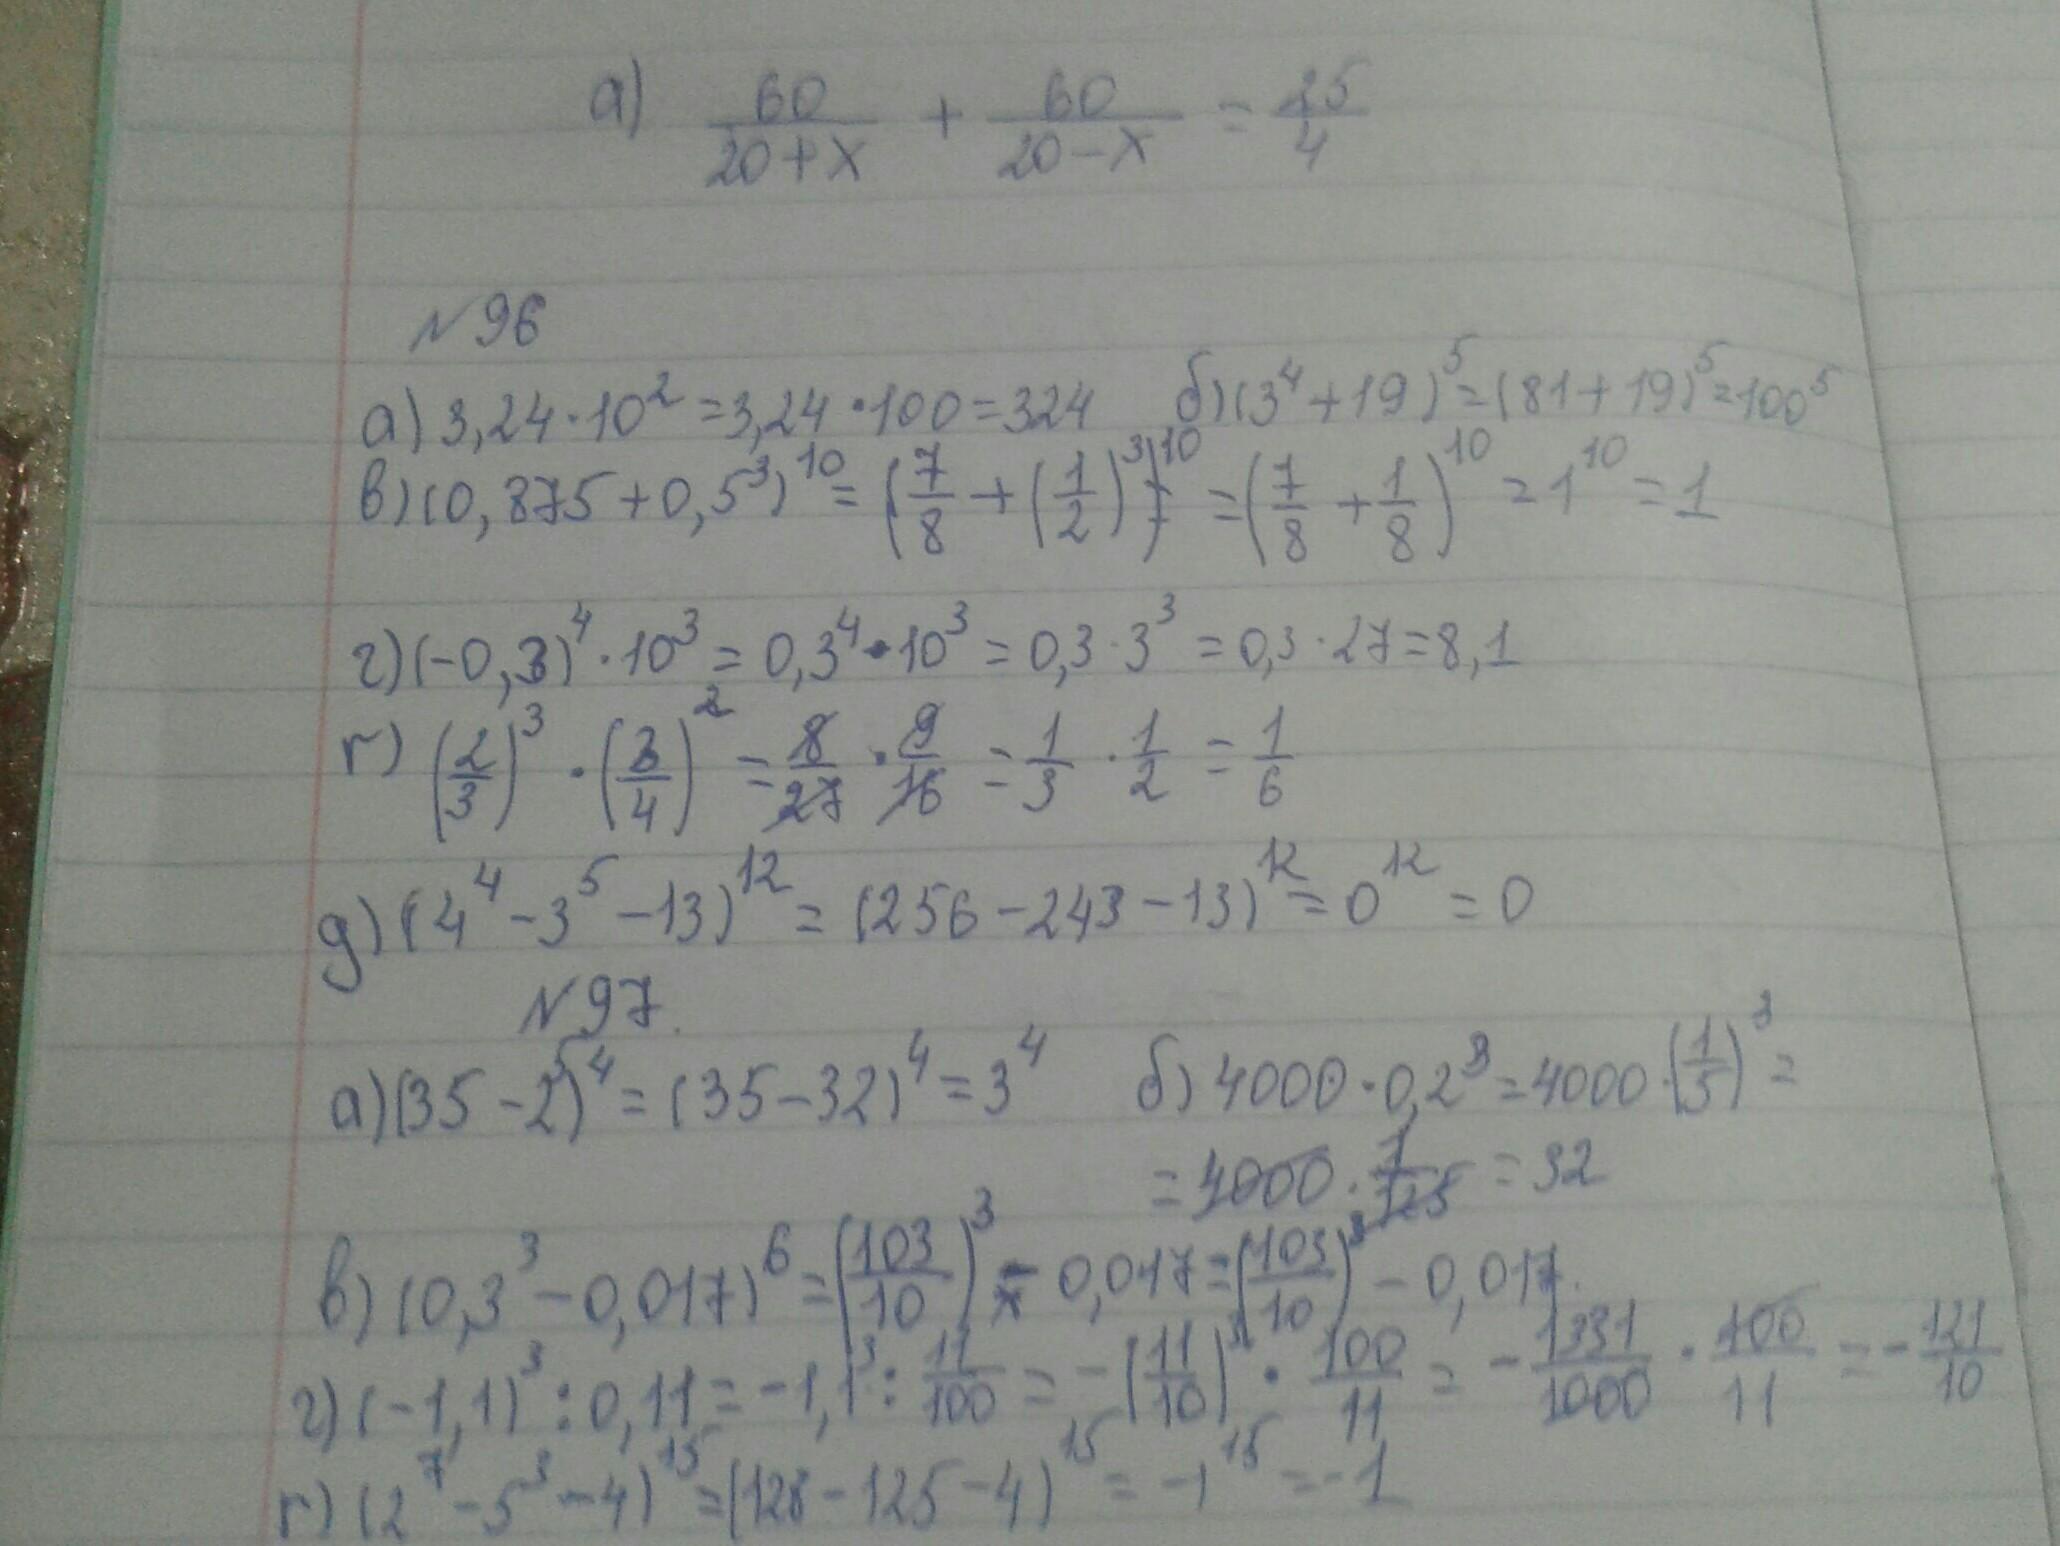 а) 60/(20+x) + 60/(20-x) = 25/4
№96
а) 3,24·10² = 3,24·100 = 324 б) (3⁴+19)⁵ = (81+19)⁵ = 100⁵
в) (0,875+0,5³)¹⁰ = (7/8 + (1/2)³)¹⁰ = (7/8 + 1/8)¹⁰ = 1¹⁰ = 1
г) (-0,3)⁴·10³ = 0,3⁴·10³ = 0,3·3³ = 0,3·27 = 8,1
ґ) (2/3)³ · (3/4)² = 8/27 · 9/16 = 1/3 · 1/2 = 1/6
д) (4⁴-3⁵-13)¹² = (256-243-13)¹² = 0¹² = 0
№97.
а) (35-2⁵)⁴ = (35-32)⁴ = 3⁴ б) 4000·0,2³ = 4000·(1/5)³ =
= 4000 · 1/125 = 32
в) (0,3³-0,017)⁶ = (103/10)³ - 0,017 = (103/10)³ - 0,017.
г) (-1,1)³ : 0,11 = -1,1³ : 11/100 = -(11/10)³ · 100/11 = - 1331/1000 · 100/11 = - 121/10
ґ) (2⁷-5³-4)¹⁵ = (128-125-4)¹⁵ = -1¹⁵ = -1